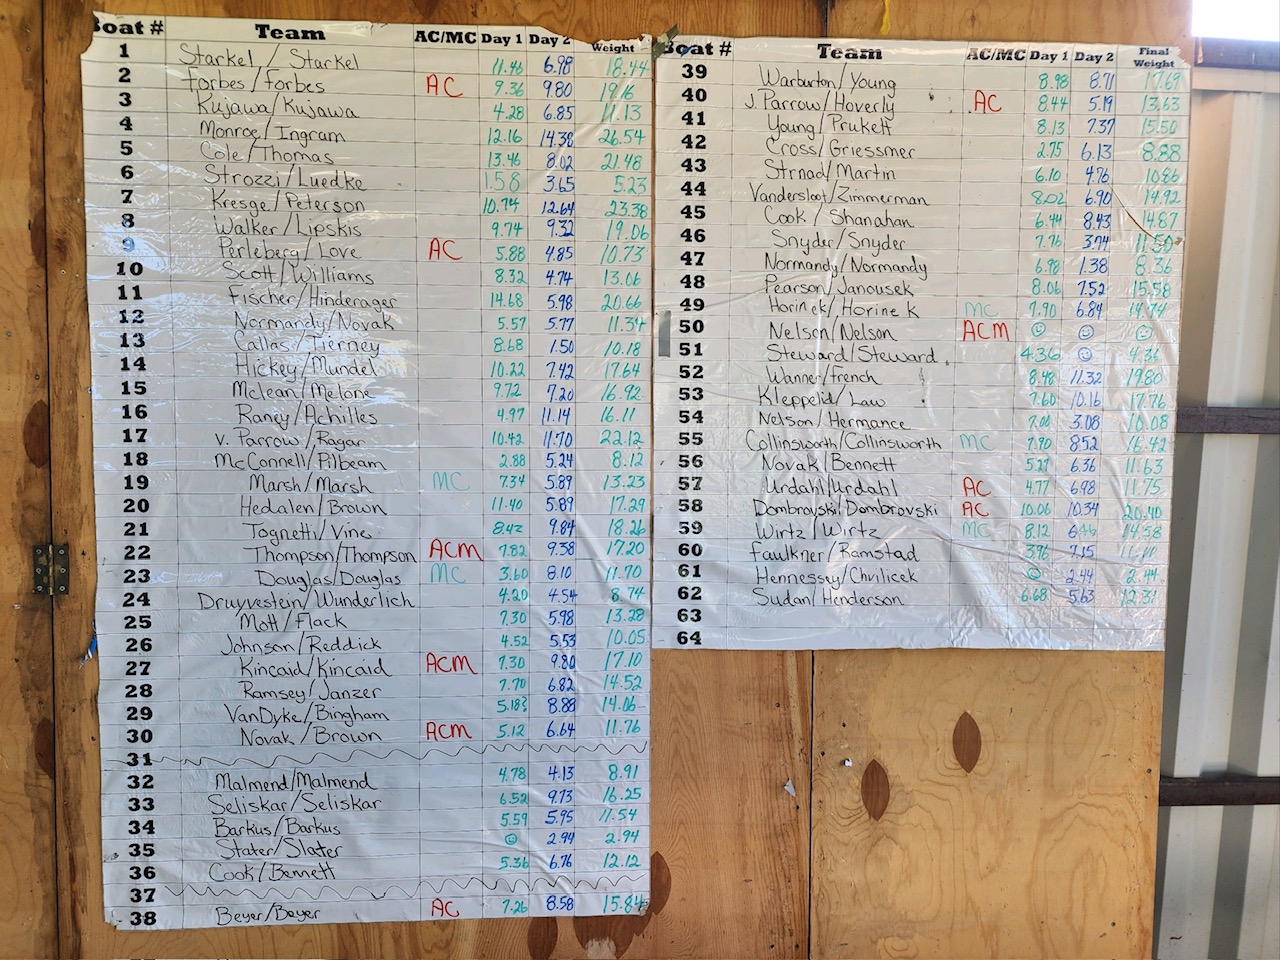 Boat # Team AC/MC Day 1 Day 2 Weight
1 Starkel / Starkel 11.46 6.98 18.44
2 Forbes / Forbes AC 9.36 9.80 19.16
3 Kujawa / Kujawa 4.28 6.85 11.13
4 Monroe / Ingram 12.16 14.38 26.54
5 Cole / Thomas 13.46 8.02 21.48
6 Strozzi / Luedke 1.58 3.65 5.23
7 Kresge / Peterson 10.74 12.64 23.38
8 Walker / Lipskis 9.74 9.32 19.06
9 Perleberg / Love AC 5.88 4.85 10.73
10 Scott / Williams 8.32 4.74 13.06
11 Fischer / Hinderager 14.68 5.98 20.66
12 Normandy / Novak 5.57 5.77 11.34
13 Callas / Tierney 8.68 1.50 10.18
14 Hickey / Mundel 10.22 7.42 17.64
15 Mclean / Melone 9.72 7.20 16.92
16 Raney / Achilles 4.97 11.14 16.11
17 V. Parrow / Ragar 10.42 11.70 22.12
18 McConnell / Pilbeam 2.88 5.24 8.12
19 Marsh / Marsh MC 7.34 5.89 13.23
20 Hedalen / Brown 11.40 5.89 17.29
21 Tognetti / Vine 8.42 9.84 18.26
22 Thompson / Thompson ACM 7.82 9.38 17.20
23 Douglas / Douglas MC 3.60 8.10 11.70
24 Druyvestein / Wunderlich 4.20 4.54 8.74
25 Mott / Flack 7.30 5.98 13.28
26 Johnson / Reddick 4.52 5.53 10.05
27 Kincaid / Kincaid ACM 7.30 9.80 17.10
28 Ramsey / Janzer 7.70 6.82 14.52
29 VanDyke / Bingham 5.18 8.88 14.06
30 Novak / Brown ACM 5.12 6.64 11.76
31
32 Malmend / Malmend 4.78 4.13 8.91
33 Seliskar / Seliskar 6.52 9.73 16.25
34 Barkus / Barkus 5.59 5.95 11.54
35 Slater / Slater ☺ 2.94 2.94
36 Cook / Bennett 5.36 6.76 12.12
37
38 Beyer / Beyer AC 7.26 8.58 15.84
Boat # Team AC/MC Day 1 Day 2 Final Weight
39 Warburton / Young 8.98 8.71 17.69
40 J. Parrow / Hoverly AC 8.44 5.19 13.63
41 Young / Prukett 8.13 7.37 15.50
42 Cross / Griessmer 2.75 6.13 8.88
43 Strnad / Martin 6.10 4.76 10.86
44 Vandersloot / Zimmerman 8.02 6.90 14.92
45 Cook / Shanahan 6.44 8.43 14.87
46 Snyder / Snyder 7.76 3.74 11.50
47 Normandy / Normandy 6.98 1.38 8.36
48 Pearson / Janousek 8.06 7.52 15.58
49 Horinek / Horinek MC 7.90 6.84 14.74
50 Nelson / Nelson ACM ☺ ☺ ☺
51 Steward / Steward 4.36 ☺ 4.36
52 Wanner / French 8.48 11.32 19.80
53 Kleppelid / Law 7.60 10.16 17.76
54 Nelson / Hermance 7.00 3.08 10.08
55 Collinsworth / Collinsworth MC 7.90 8.52 16.42
56 Novak / Bennett 5.27 6.36 11.63
57 Urdahl / Urdahl AC 4.77 6.98 11.75
58 Dombrovski / Dombrovski AC 10.06 10.34 20.40
59 Wirtz / Wirtz MC 8.12 6.46 14.58
60 Faulkner / Ramstad 3.96 7.15 11.11
61 Hennessy / Chvilicek ☺ 2.44 2.44
62 Sudan / Henderson 6.68 5.63 12.31
63
64